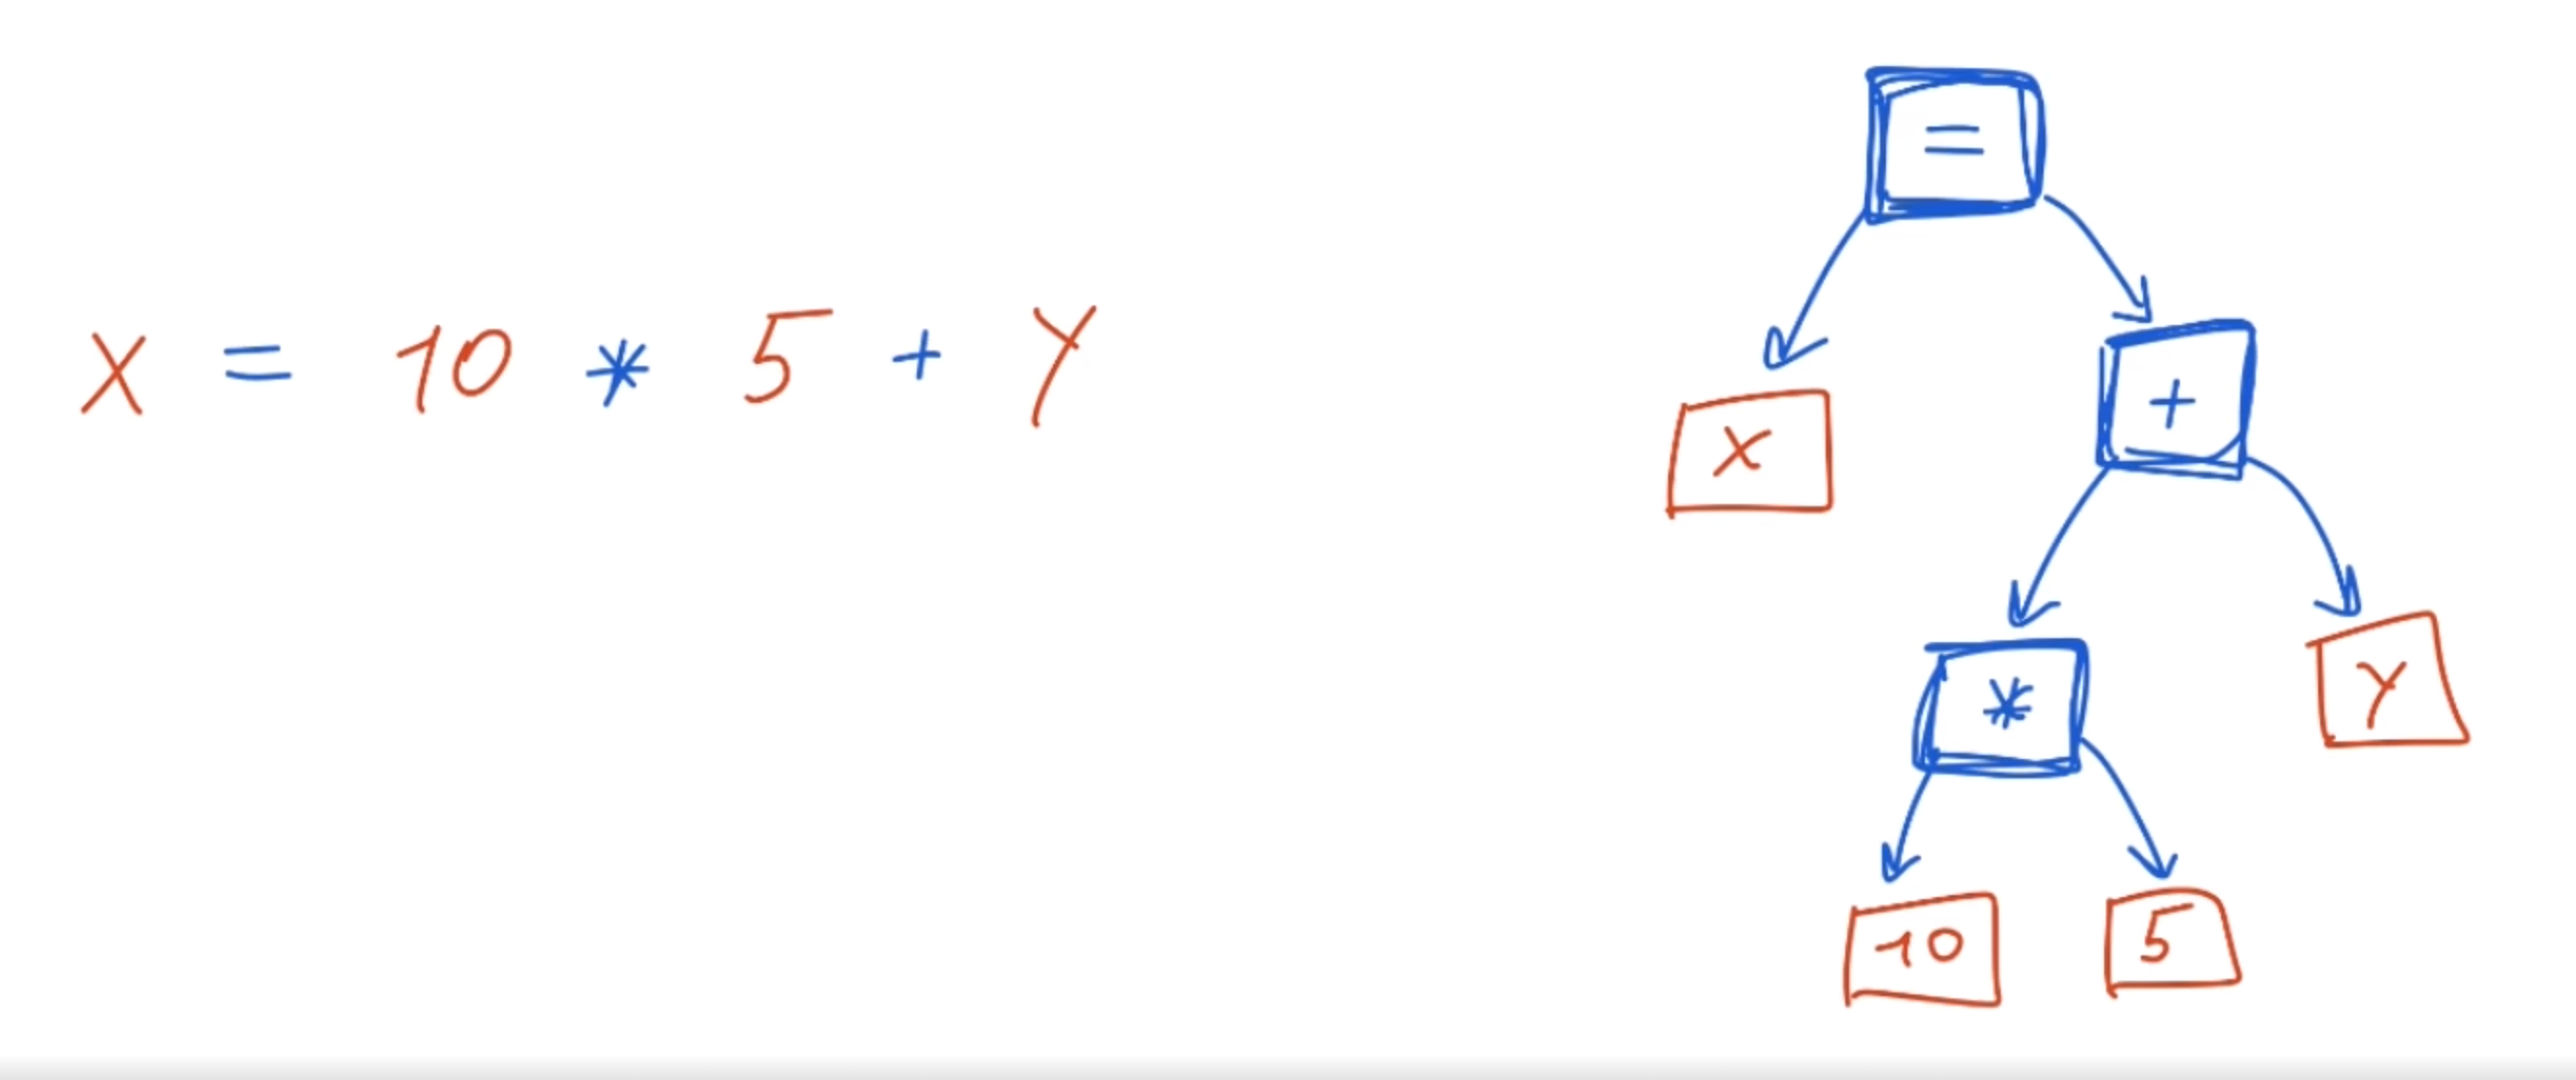 X = 10 * 5 + Y
=
X +
* Y
10 5